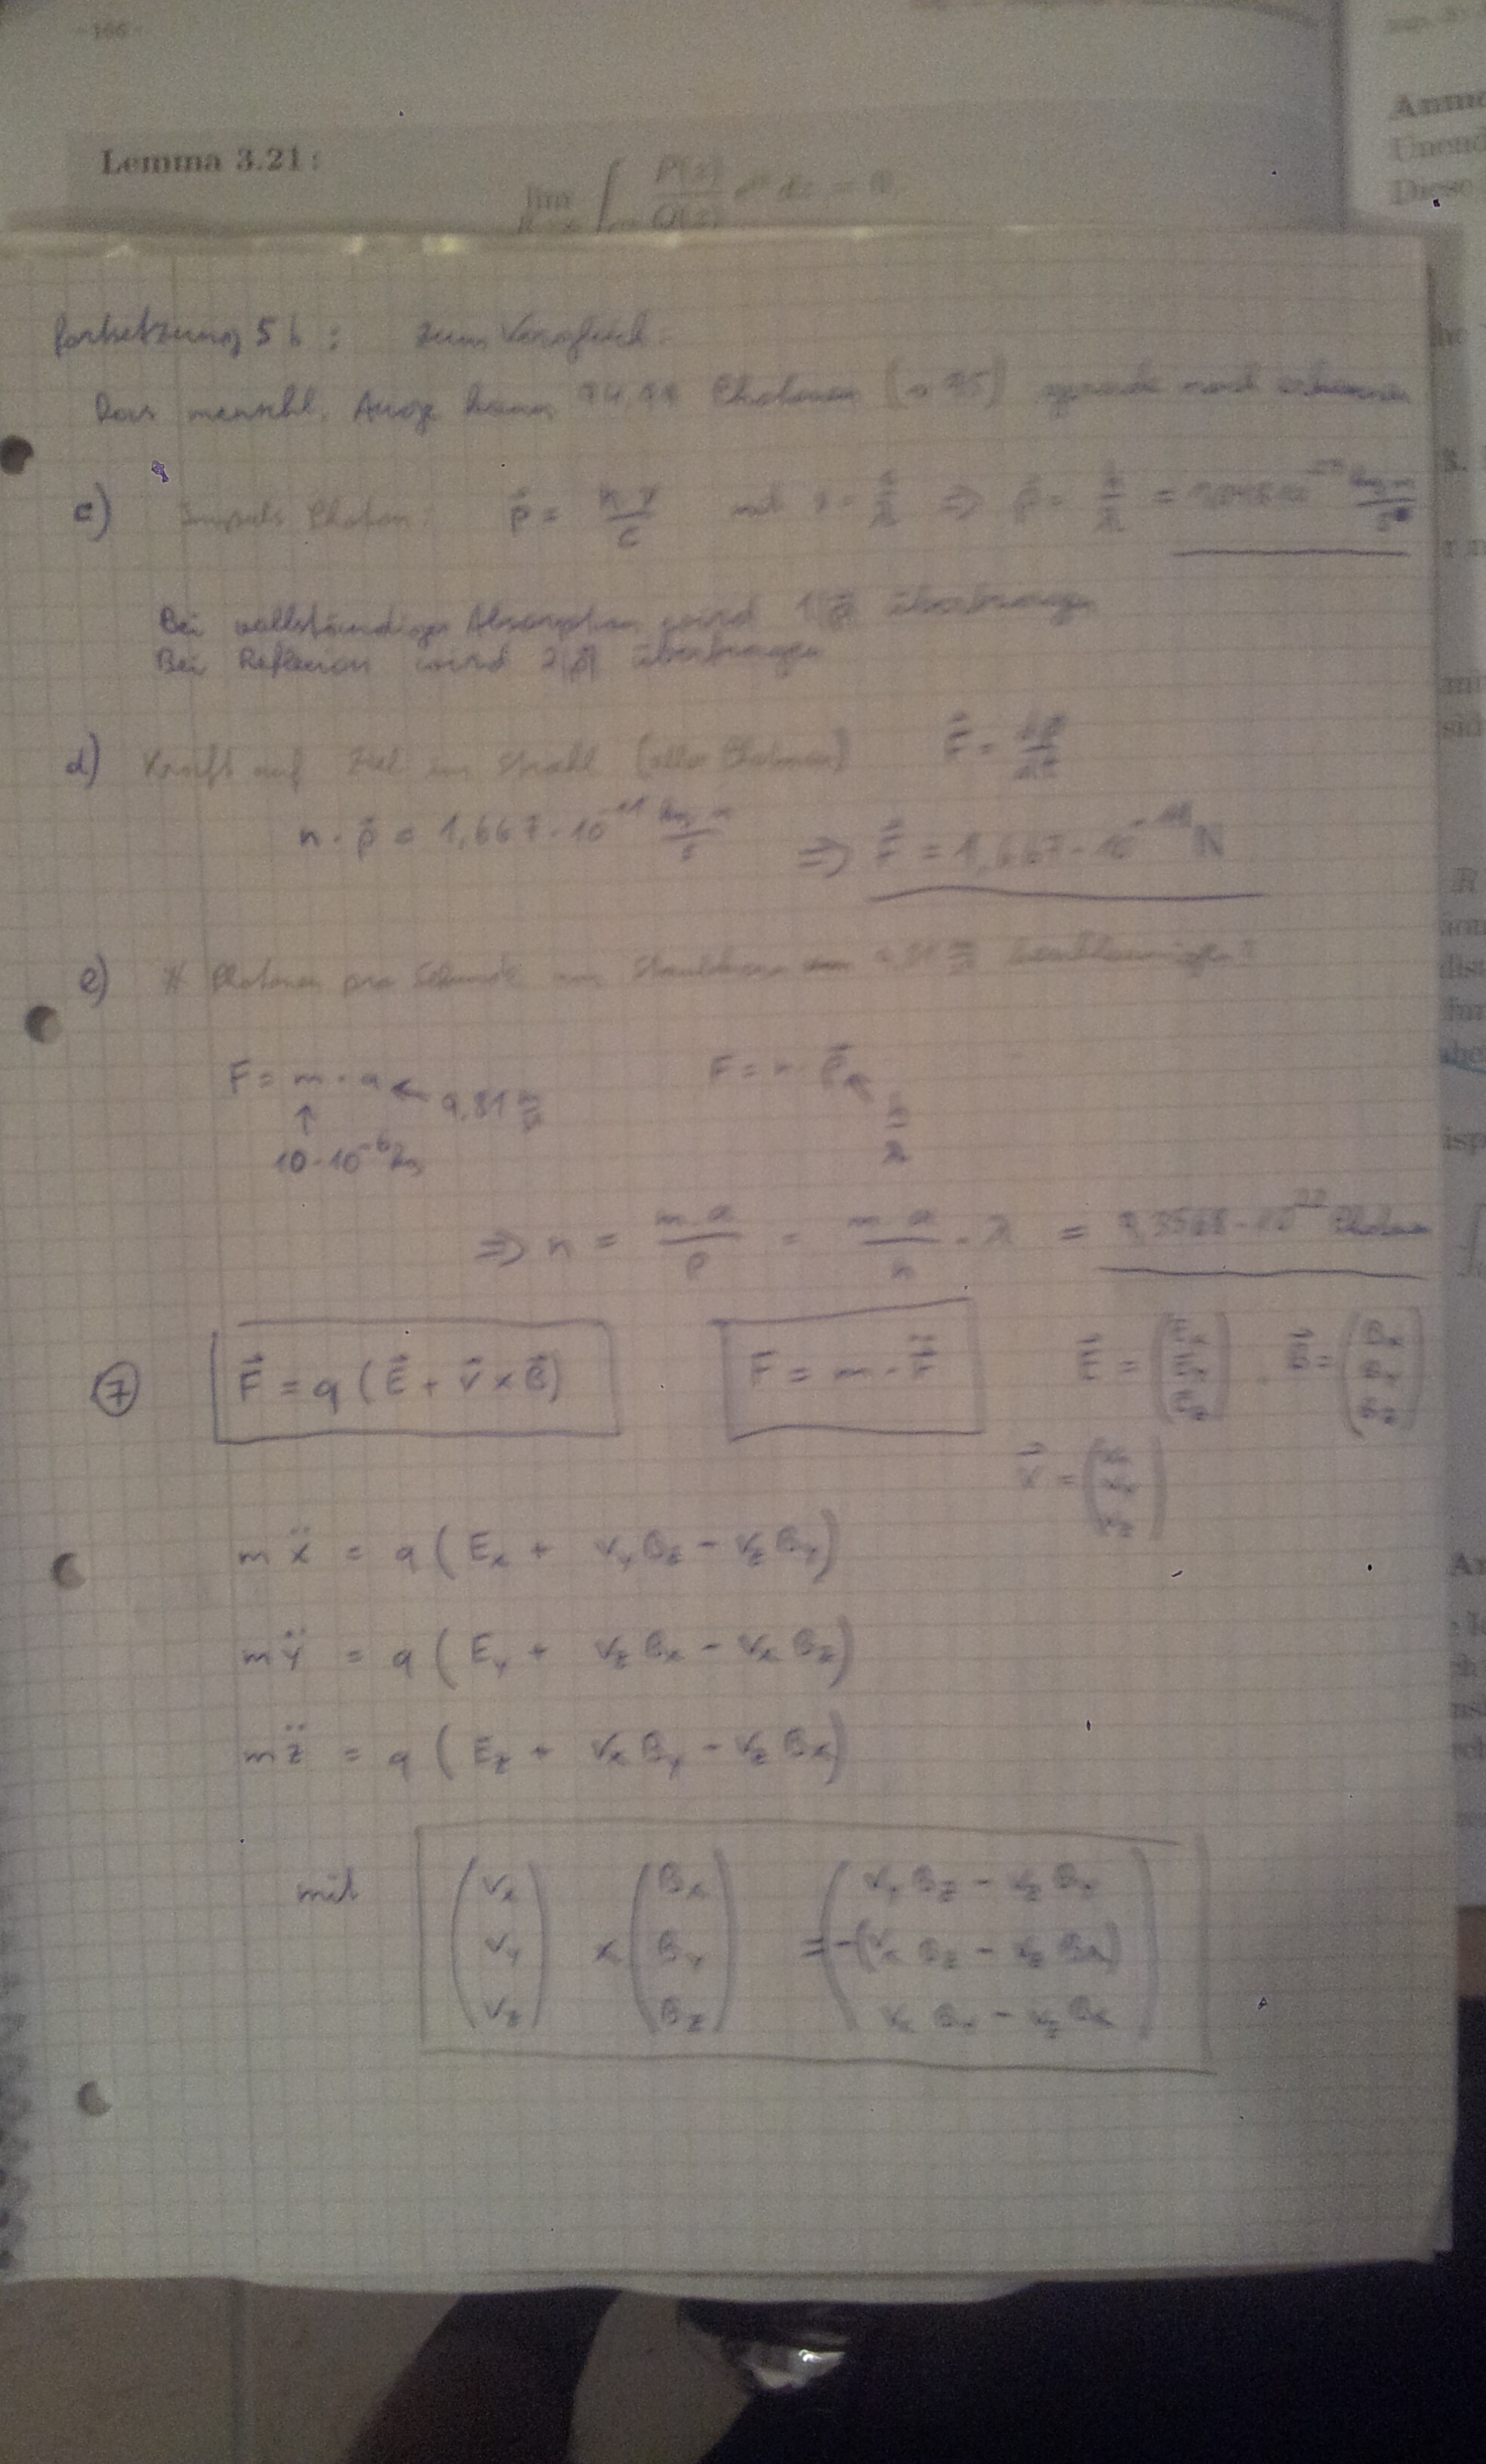 -166-
Lemma 3.21:
lim ∫ P(z)/Q(z) dz = 0
Anme
Unend
Diese
Fortsetzung 5b: Zum Vergleich.
Das menschl. Auge kann 94,99 Photonen (≈ 95) gerade noch erkennen
c) Impuls Photon: p⃗ = hν/c mit ⇒ p⃗ = h/λ = kg m/s
Bei vollständiger Absorption wird 1|p⃗| übertragen
Bei Reflexion wird 2|p⃗| übertragen
d) Kraft auf Ziel im Strahl (aller Photonen) F⃗ = Δp⃗/Δt
n · p⃗ = 1,667 · 10⁻¹¹ kg m/s ⇒ F⃗ = 1,667 · 10⁻¹¹ N
e) # Photonen pro Sekunde um Staubkorn 9,81 m/s² beschleunigen?
F = m · a ← 9,81 m/s² F = n · p⃗ ← h/λ
↑
10 · 10⁻⁶ kg
⇒ n = m·a/p = m·a/h · λ = Photonen
⑦ F⃗ = q (E⃗ + v⃗ x B⃗) F = m · r̈⃗ E⃗ = (Ex Ey Ez) B⃗ = (Bx By Bz)
v⃗ = (vx vy vz)
mẍ = q (Ex + vyBz - vzBy)
mÿ = q (Ey + vzBx - vxBz)
mz̈ = q (Ez + vxBy - vzBx)
mit (vx vy vz) x (Bx By Bz) = (vyBz - vzBy -(vxBz - vzBx) vxBy - vzBx)